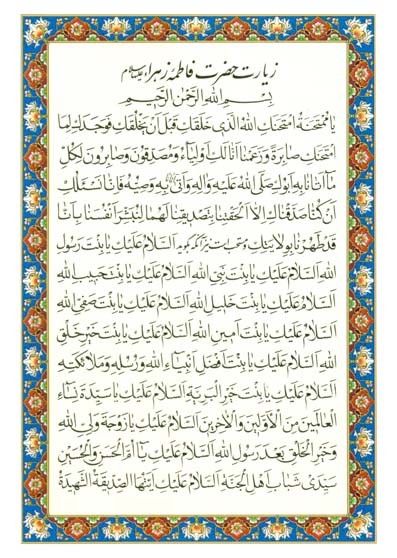 زیارت حضرت فاطمهٔ زهرا علیهاالسلام
بِسْمِ اللهِ الرَّحْمٰنِ الرَّحیمِ
یا مُمْتَحَنَةُ امْتَحَنَكِ اللهُ الَّذی خَلَقَكِ قَبْلَ اَنْ یَخْلُقَكِ فَوَجَدَكِ لِمَا
امْتَحَنَكِ صابِرَةً وَ زَعَمْنا اَنّا لَكِ اَوْلِیاءُ وَ مُصَدِّقُونَ وَ صابِرُونَ لِكُلِّ
ما اَتانا بِهِ اَبُوكِ صَلَّی اللهُ عَلَیْهِ وَ الِهِ وَ اَتی بِهِ وَصِیُّهُ فَاِنّا نَسْئَلُكِ
اِنْ كُنّا صَدَّقْناكِ اِلّا اَلْحَقْتِنا بِتَصْدیقِنا لَهُما لِنُبَشِّرَ اَنْفُسَنا بِاَنّا
قَدْ طَهُرْنا بِوِلایَتِكِ و مستحب است نیز آنكه بگوید اَلسَّلامُ عَلَیْكِ یا بِنْتَ رَسُولِ
اللهِ اَلسَّلامُ عَلَیْكِ یا بِنْتَ نَبِیِّ اللهِ اَلسَّلامُ عَلَیْكِ یا بِنْتَ حَبیبِ اللهِ
اَلسَّلامُ عَلَیْكِ یا بِنْتَ خَلیلِ اللهِ اَلسَّلامُ عَلَیْكِ یا بِنْتَ صَفِیِّ اللهِ
اَلسَّلامُ عَلَیْكِ یا بِنْتَ اَمینِ اللهِ اَلسَّلامُ عَلَیْكِ یا بِنْتَ خَیْرِ خَلْقِ
اللهِ اَلسَّلامُ عَلَیْكِ یا بِنْتَ اَفْضَلِ اَنْبِیاءِ اللهِ وَ رُسُلِهِ وَ مَلائِكَتِهِ
اَلسَّلامُ عَلَیْكِ یا بِنْتَ خَیْرِ الْبَرِیَّةِ اَلسَّلامُ عَلَیْكِ یا سَیِّدَةَ نِساءِ
الْعالَمینَ مِنَ الْاَوَّلینَ وَ الْاخِرینَ اَلسَّلامُ عَلَیْكِ یا زَوْجَةَ وَلِیِّ اللهِ
وَ خَیْرِ الْخَلْقِ بَعْدَ رَسُولِ اللهِ اَلسَّلامُ عَلَیْكِ یا اُمَّ الْحَسَنِ وَ الْحُسَیْنِ
سَیِّدَیْ شَبابِ اَهْلِ الْجَنَّةِ اَلسَّلامُ عَلَیْكِ اَیَّتُهَا الصِّدّیقَةُ الشَّهیدَةُ